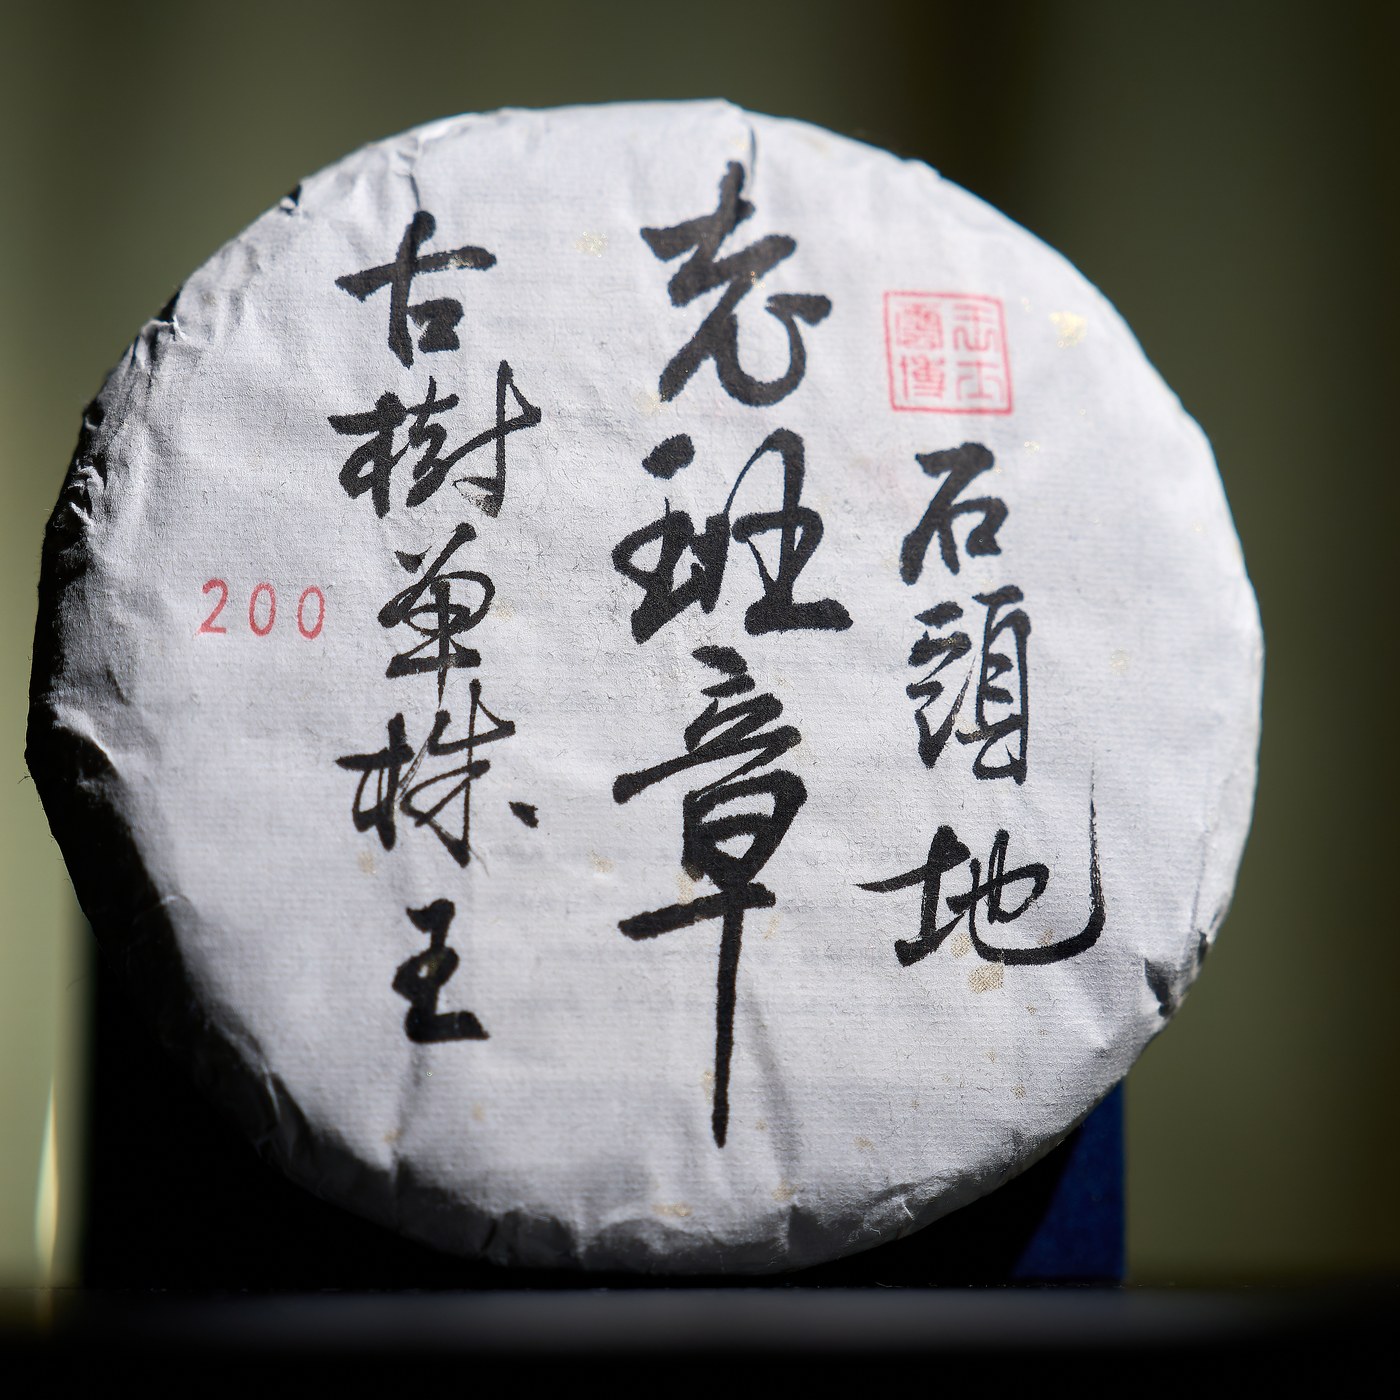 石頭地
老班章
古樹單株王
200